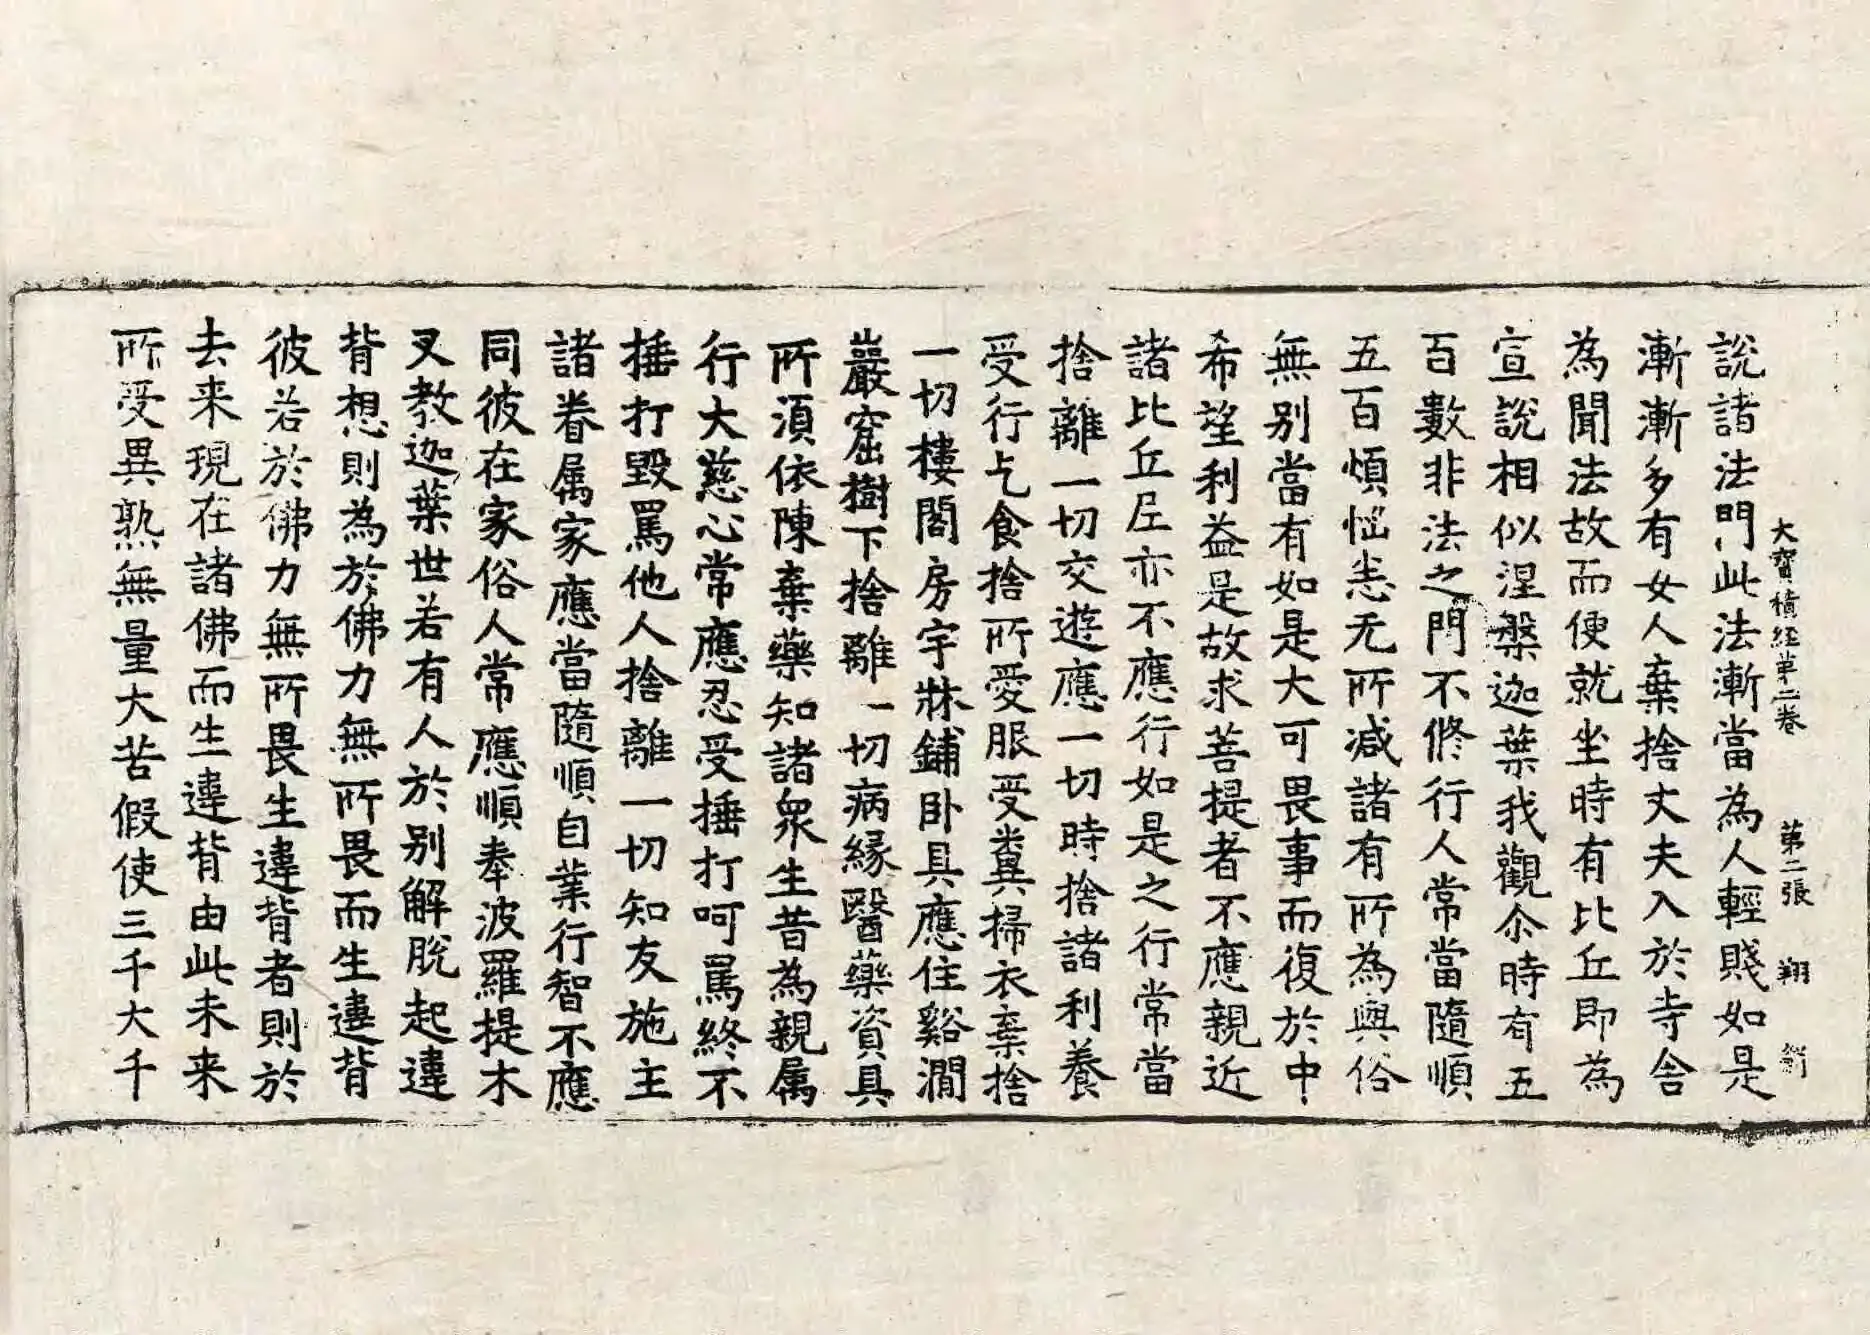 大寶積經第二卷 第二張 翔
說諸法門此法漸當為人輕賤如是
漸漸多有女人棄捨丈夫入於寺舍
為聞法故而便就坐時有比丘即為
宣說相似涅槃迦葉我觀尒時有五
百數非法之門不修行人常當隨順
五百煩惱恚无所減諸有所為與俗
無别當有如是大可畏事而復於中
希望利益是故求菩提者不應親近
諸比丘尼亦不應行如是之行常當
捨離一切交遊應一切時捨諸利養
受行乞食捨所愛服受糞掃衣棄捨
一切樓閣房宇牀鋪卧具應住谿澗
巖窟樹下捨離一切病緣醫藥資具
所須依陳棄藥知諸眾生昔為親属
行大慈心常應忍受捶打呵罵終不
捶打毀罵他人捨離一切知友施主
諸眷属家應當隨順自業行智不應
同彼在家俗人常應順奉波羅提木
叉教迦葉世若有人於别解脫起違
背想則為於佛力無所畏而生違背
彼若於佛力無所畏生違背者則於
去来現在諸佛而生違背由此未来
所受異熟無量大苦假使三千大千